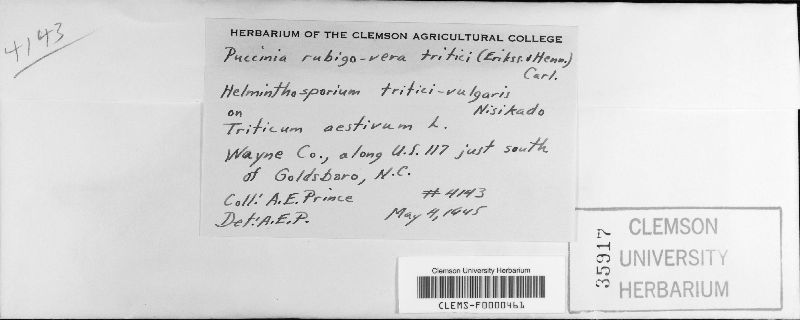 4143
HERBARIUM OF THE CLEMSON AGRICULTURAL COLLEGE
Puccinia rubigo-vera tritici (Erikss. & Henn.)
Carl.
Helminthosporium tritici-vulgaris
Nisikado
on
Triticum aestivum L.
Wayne Co., along U.S. 117 just south
of Goldsboro, N.C.
Coll: A.E. Prince #4143
Det: A.E.P. May 4, 1945
35917
CLEMSON
UNIVERSITY
HERBARIUM
Clemson University Herbarium
CLEMS-F0000461